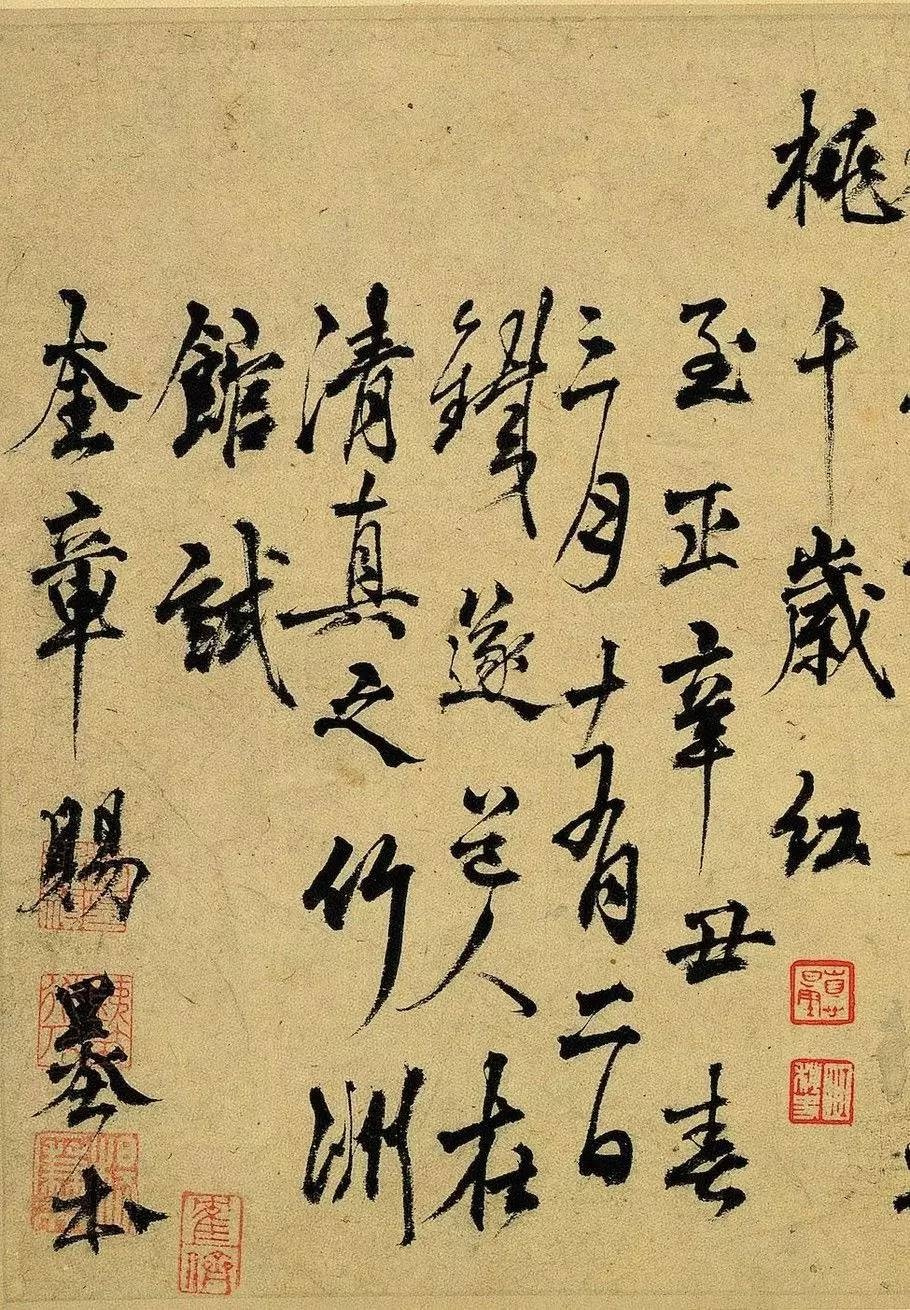 桃千歲紅
至正辛丑春
三月十有二日
鐵篴道人在
清真之竹洲
館試
奎章賜墨本